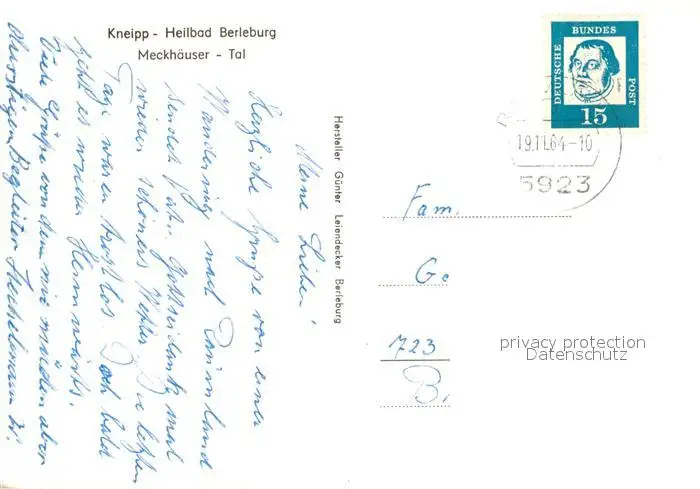 Kneipp - Heilbad Berleburg
Meckhäuser - Tal
Meine Lieben!
Herzliche Grüße von einer
Wanderung nach
sendet Gottseidank mal
wieder schönes Wetter. Die letzten
Tage waren trostlos. Doch bald
geht es wieder Heimwärts.
Viele Grüße von dem mir müden aber
durstigen Begleiter
Hersteller Günter Leiendecker Berleburg
DEUTSCHE BUNDES POST
Luther
15
19.11.64-10
5923
Fam.
Ge
723
B.
privacy protection
Datenschutz